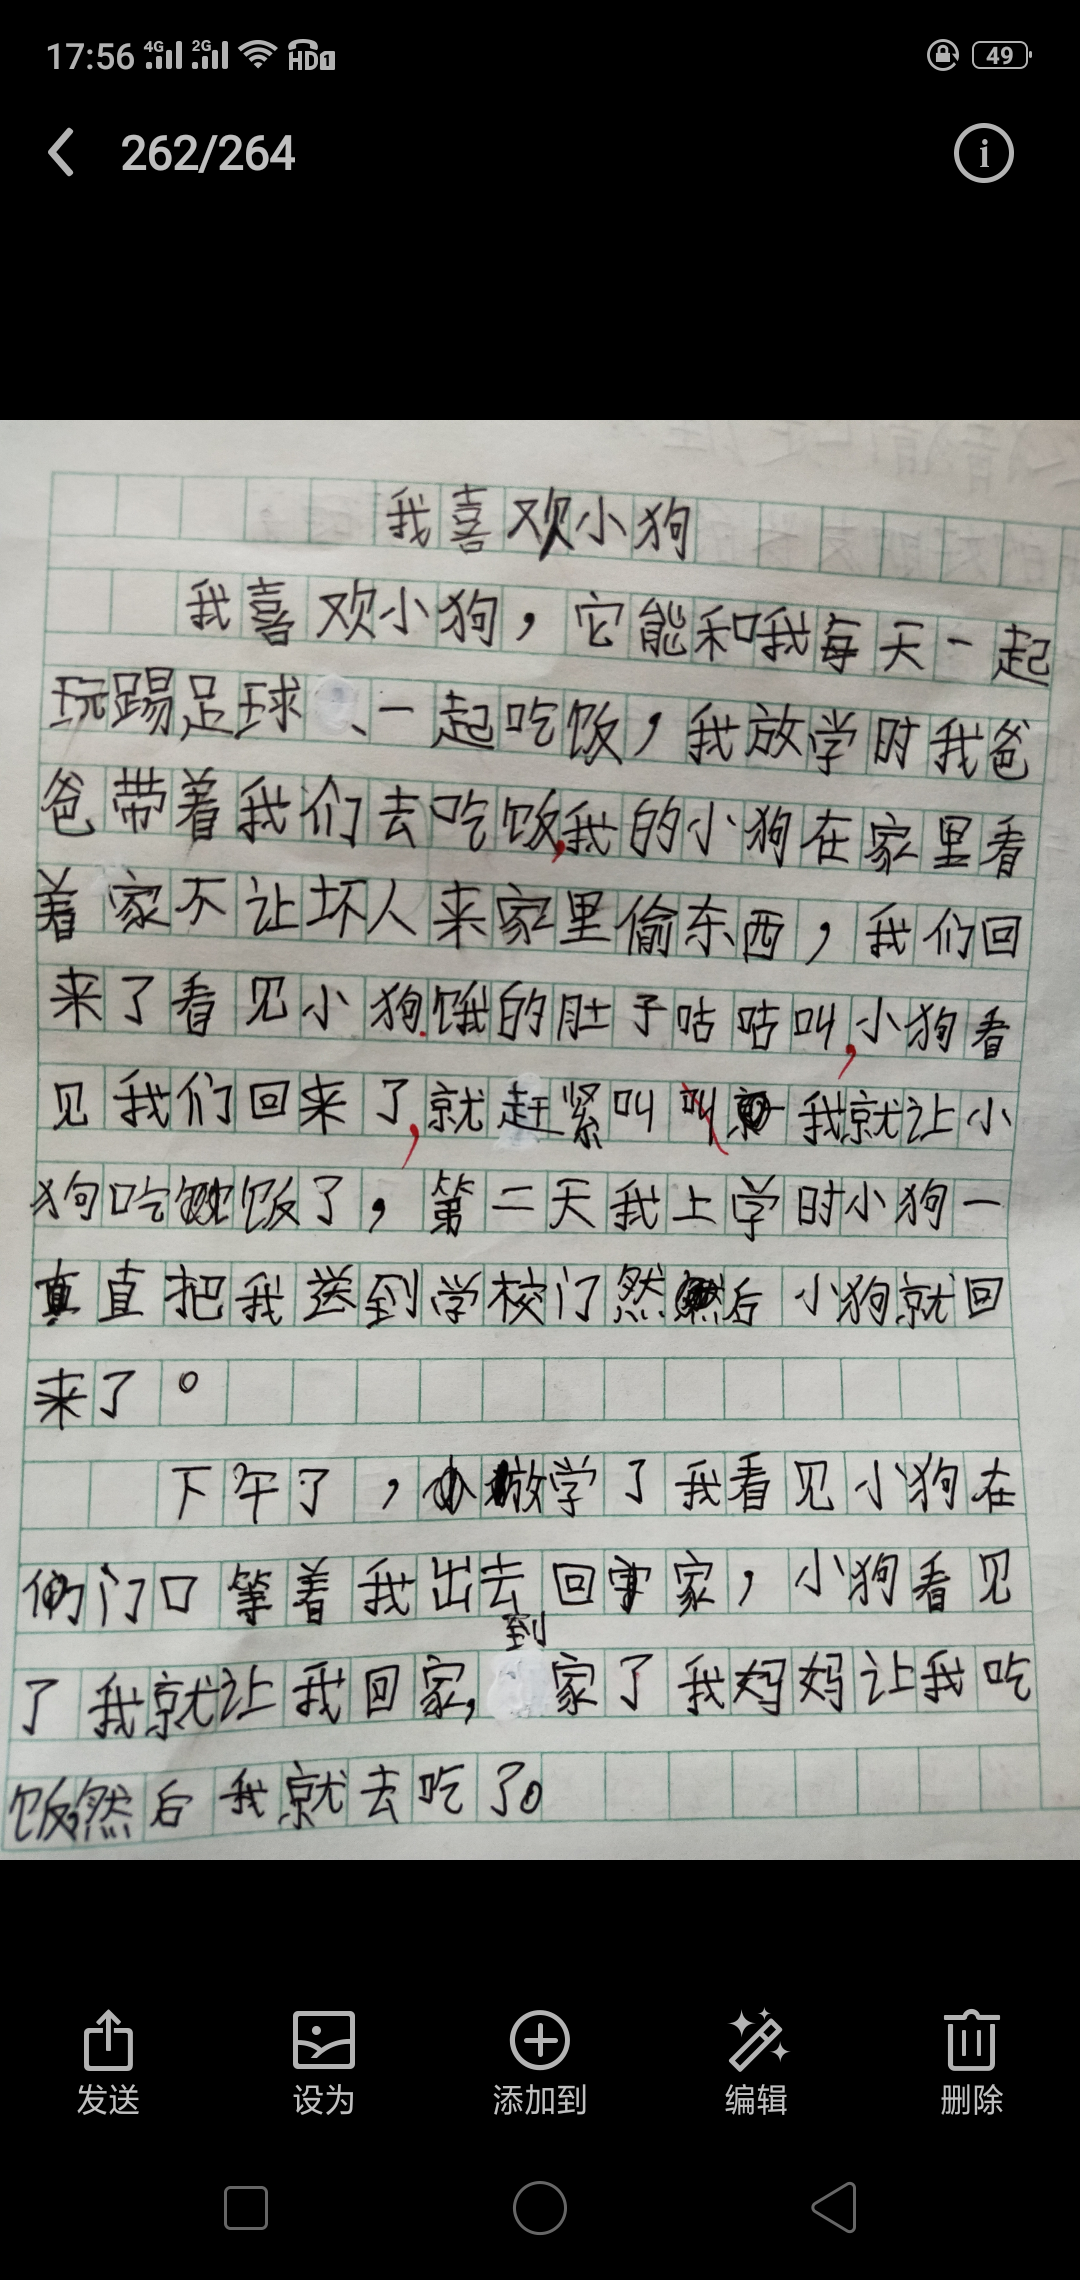 17:56 4G 2G HD1 49
262/264
我喜欢小狗
我喜欢小狗，它能和我每天一起
玩踢足球、一起吃饭，我放学时我爸
爸带着我们去吃饭，我的小狗在家里看
着家不让坏人来家里偷东西，我们回
来了看见小狗饿的肚子咕咕叫，小狗看
见我们回来了，就赶紧叫 我就让小
狗吃饭了，第二天我上学时小狗一
直把我送到学校门然后小狗就回
来了。
下午了，放学了我看见小狗在
门口等着我出去回家，小狗看见
了我就让我回家，到家了我妈妈让我吃
饭，然后我就去吃了。
发送 设为 添加到 编辑 删除